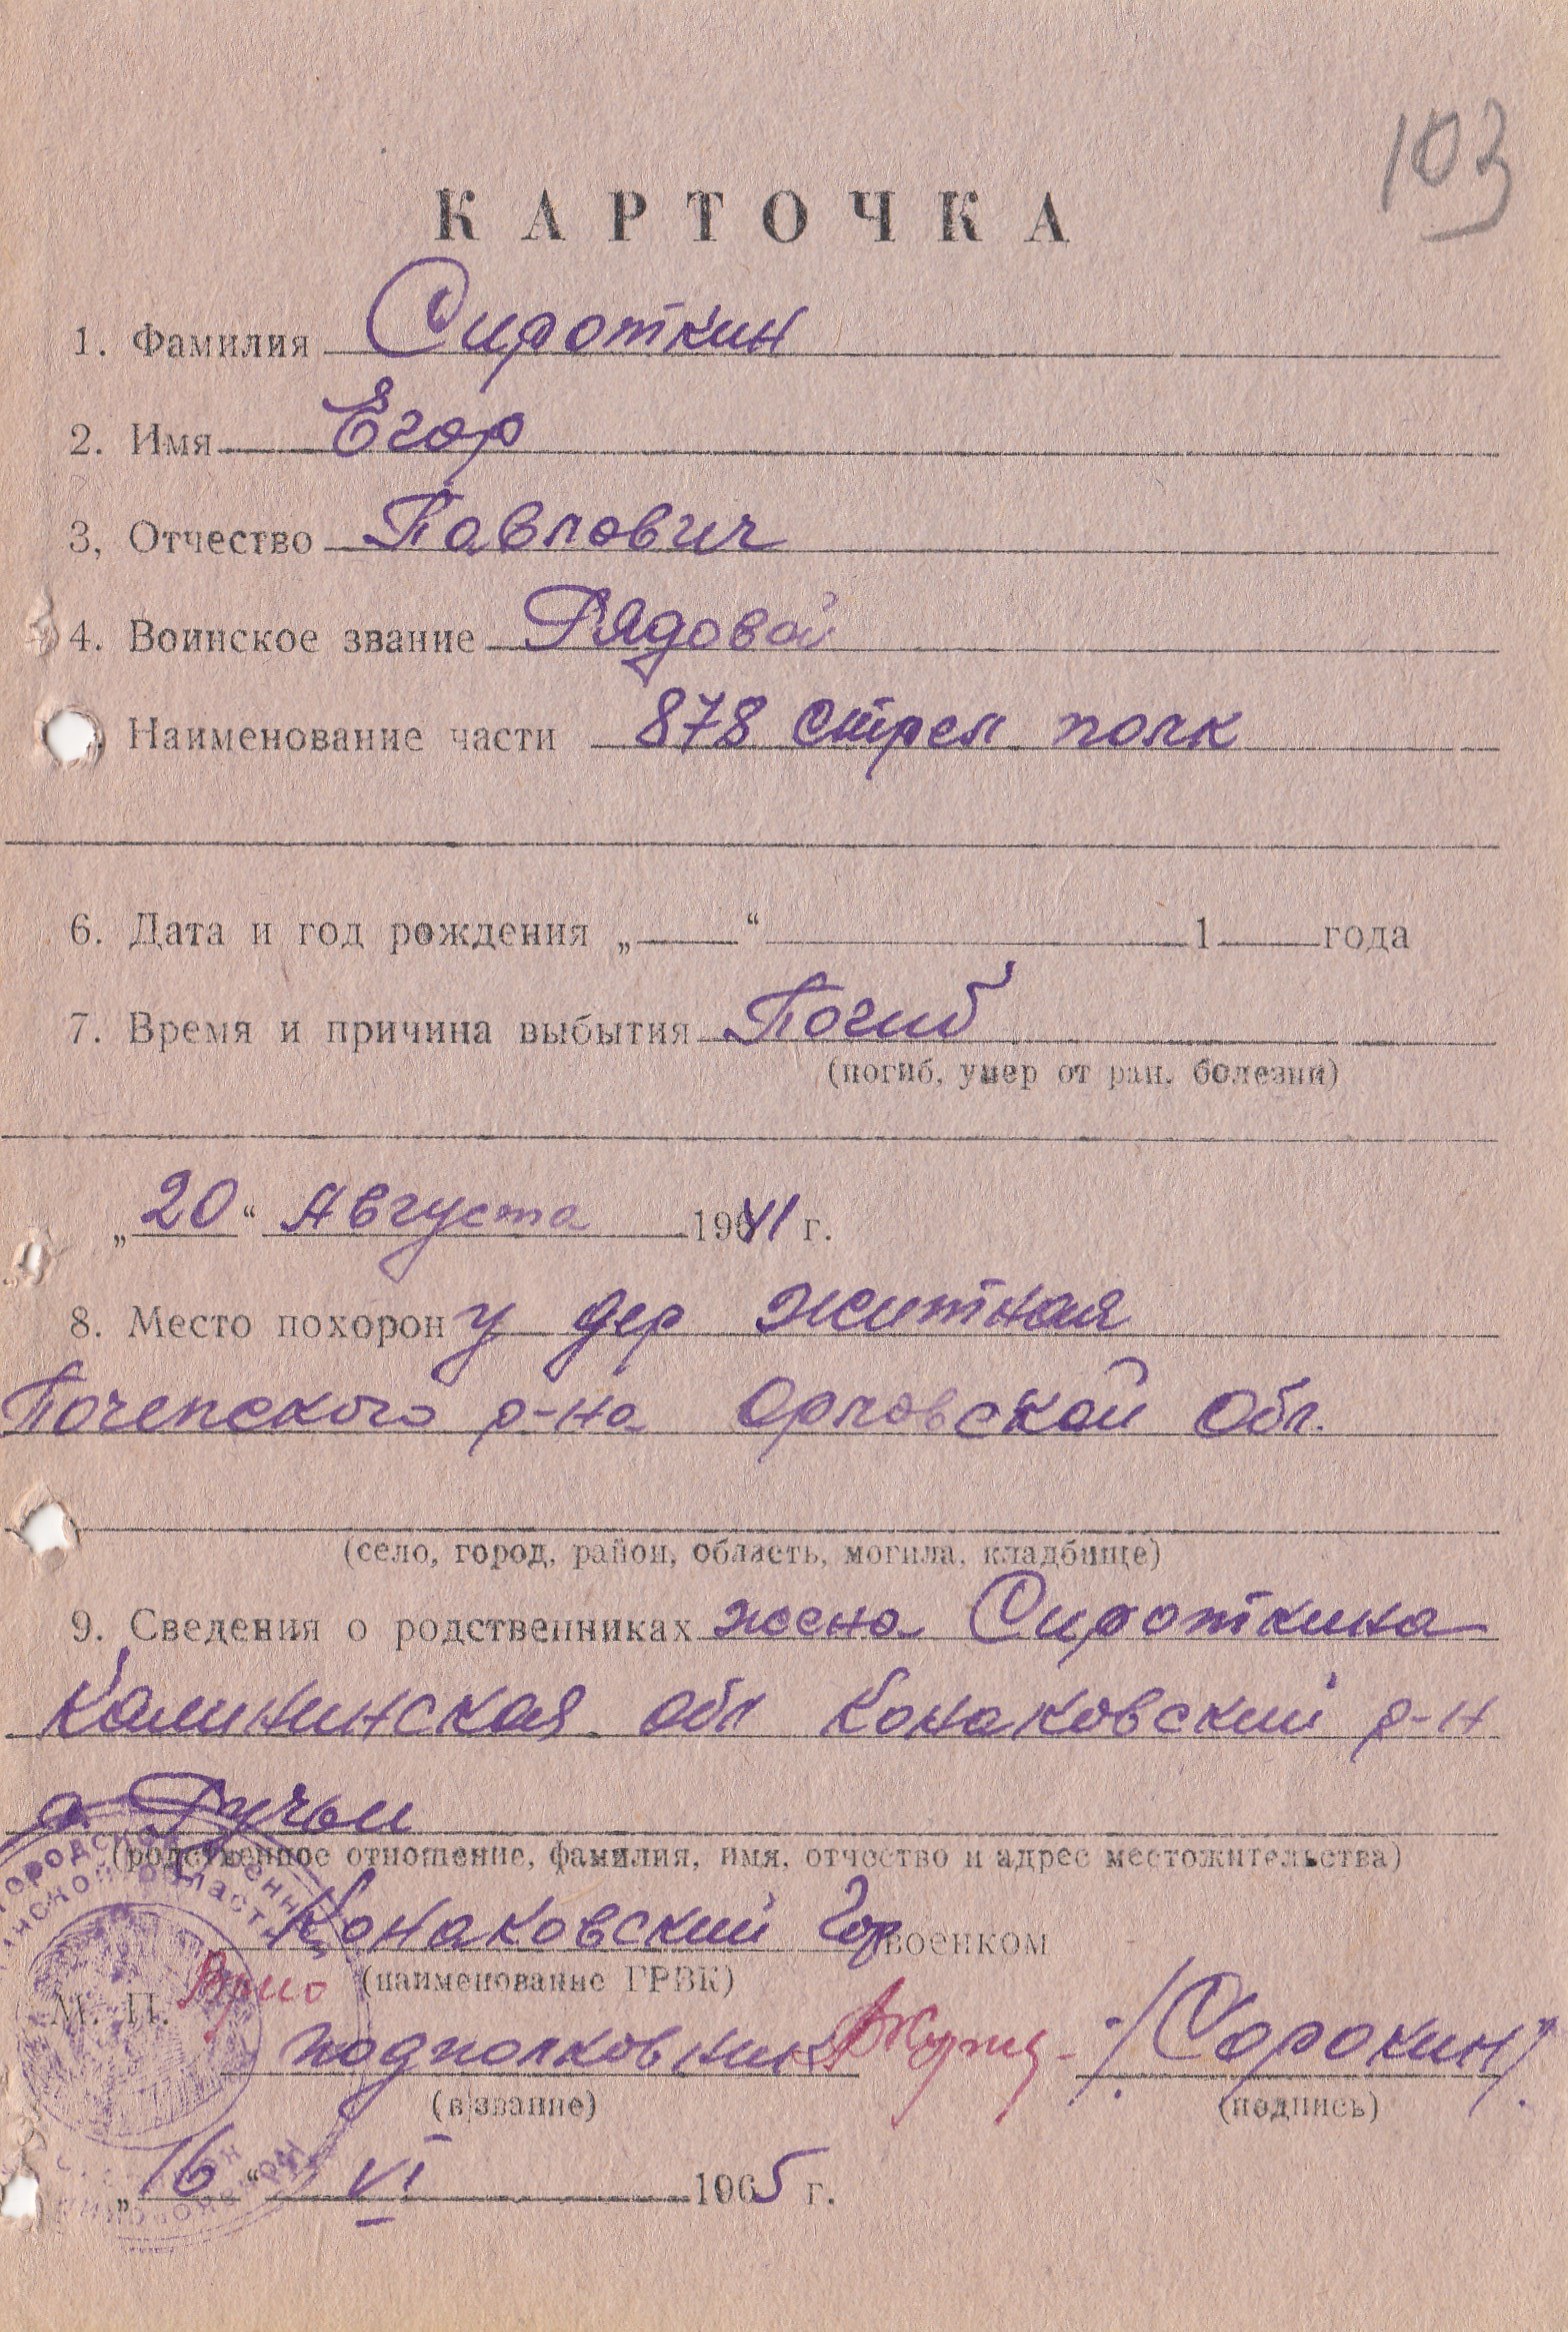 103
КАРТОЧКА
1. Фамилия Сироткин
2. Имя Егор
3, Отчество Павлович
4. Воинское звание Рядовой
Наименование части 878 стрел полк
6. Дата и год рождения „ “ 1 года
7. Время и причина выбытия Погиб
(погиб, умер от ран, болезни)
„20“ Августа 1941 г.
8. Место похорон у дер Житная
Почепского р-на Орловской обл.
(село, город, район, область, могила, кладбище)
9. Сведения о родственниках жена Сироткина
Калининская обл Конаковский р-н
д. Ручьи
(родственное отношение, фамилия, имя, отчество и адрес местожительства)
Конаковский Гор военком
Врио (наименование ГРВК)
М. П.
подполковник /Сорокин/
(в звание) (подпись)
„16“ VI 1965 г.